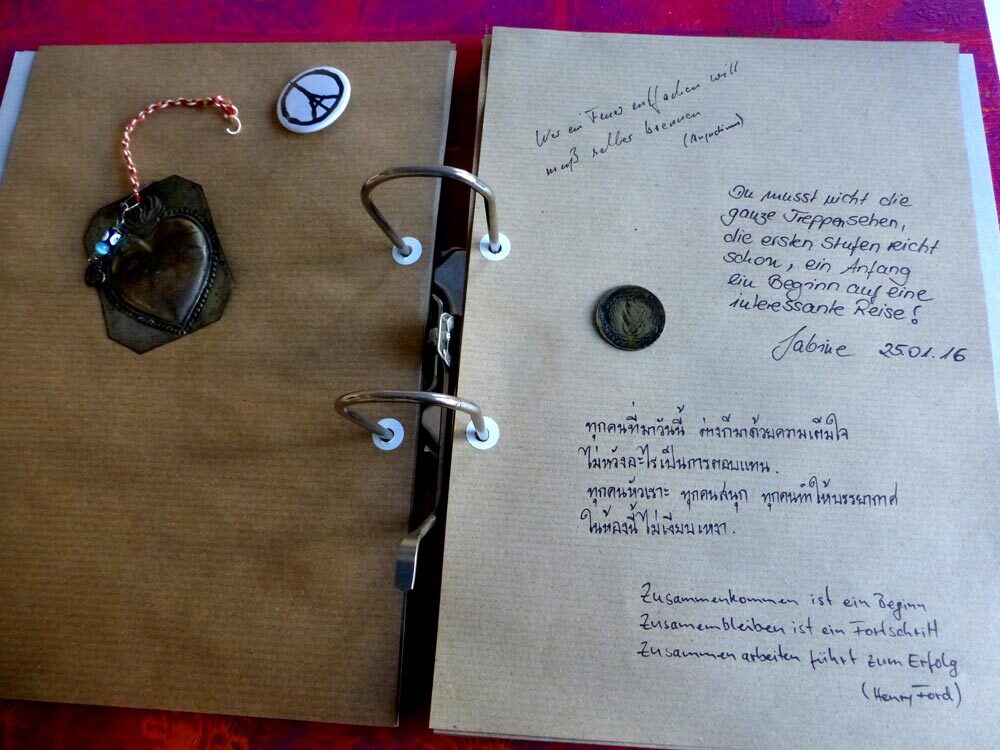 Wer ein Feuer entfachen will
muß selber brennen
(Augustinus)
Du musst nicht die
ganze Treppensehen,
die ersten Stufen reicht
schon, ein Anfang
ein Beginn auf eine
interessante Reise!
Sabine 25.01.16
ทุกคนที่มาวันนี้ ต่างก็มาด้วยความเต็มใจ
ไม่หวังอะไรเป็นการตอบแทน.
ทุกคนหัวเราะ ทุกคนสนุก ทุกคนทำให้บรรยากาศ
ในห้องนี้ไม่เงียบเหงา.
Zusammenkommen ist ein Beginn
Zusamembleiben ist ein Fortschritt
Zusammenarbeiten führt zum Erfolg
(Henry Ford)